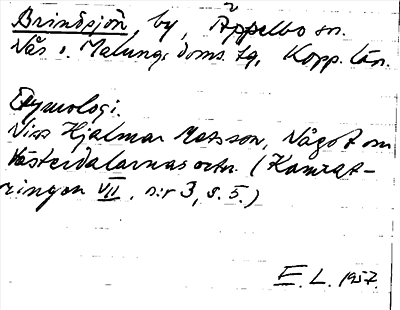 Brindsjön, by, Äppelbo sn.
Nås o. Malungs doms. tg, Kopp. län.
Etymologi.
Niss Hjalmar Matsson, Något om
Västerdalarnas ortn. (Kamrat-
ringen VII, n:r 3, s. 5.)
E. L. 1957.